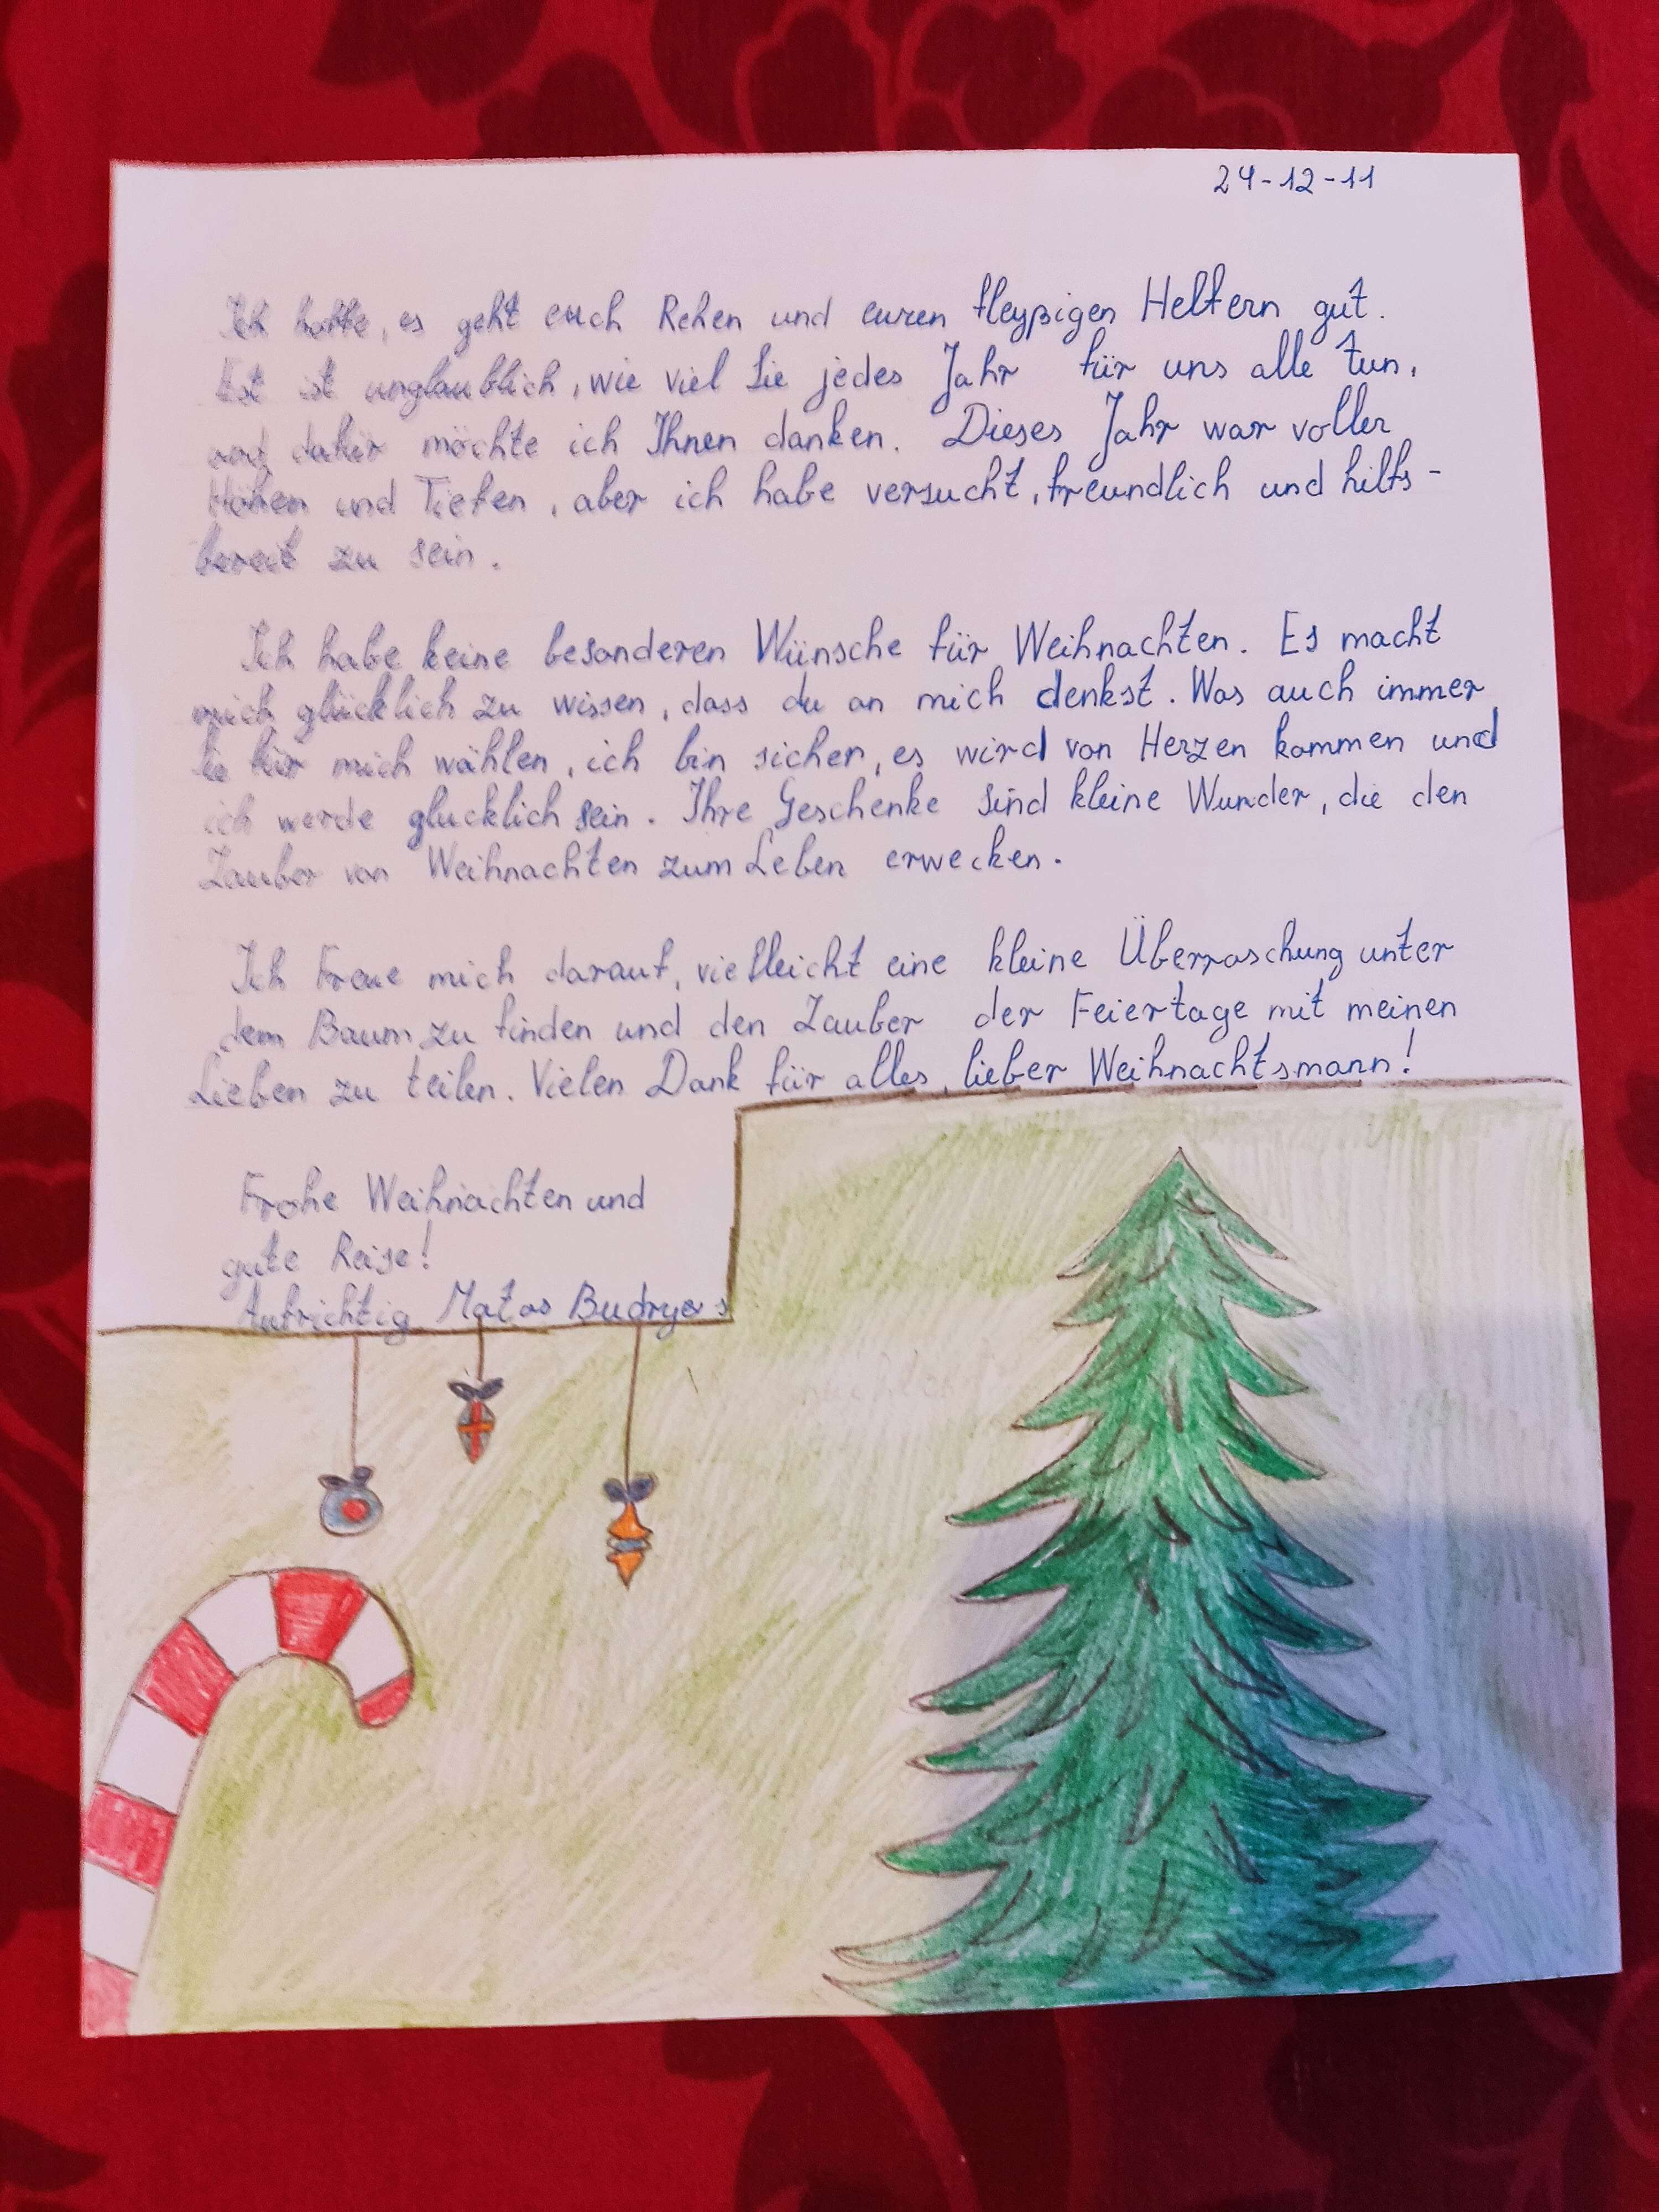 24-12-11
Ich hoffe, es geht euch Rehen und euren fleyßigen Helfern gut.
Est ist unglaublich, wie viel Sie jedes Jahr für uns alle tun,
und dafür möchte ich Ihnen danken. Dieses Jahr war voller
Höhen und Tiefen, aber ich habe versucht, freundlich und hilfs-
bereit zu sein.
Ich habe keine besonderen Wünsche für Weihnachten. Es macht
mich glücklich zu wissen, dass du an mich denkst. Was auch immer
Sie für mich wählen, ich bin sicher, es wird von Herzen kommen und
ich werde glucklich sein. Ihre Geschenke sind kleine Wunder, die den
Zauber von Weihnachten zum Leben erwecken.
Ich Freue mich darauf, vielleicht eine kleine Überraschung unter
dem Baum zu finden und den Zauber der Feiertage mit meinen
Lieben zu teilen. Vielen Dank für alles, lieber Weihnachtsmann!
Frohe Weihnachten und
gute Reise!
Aufrichtig Matas